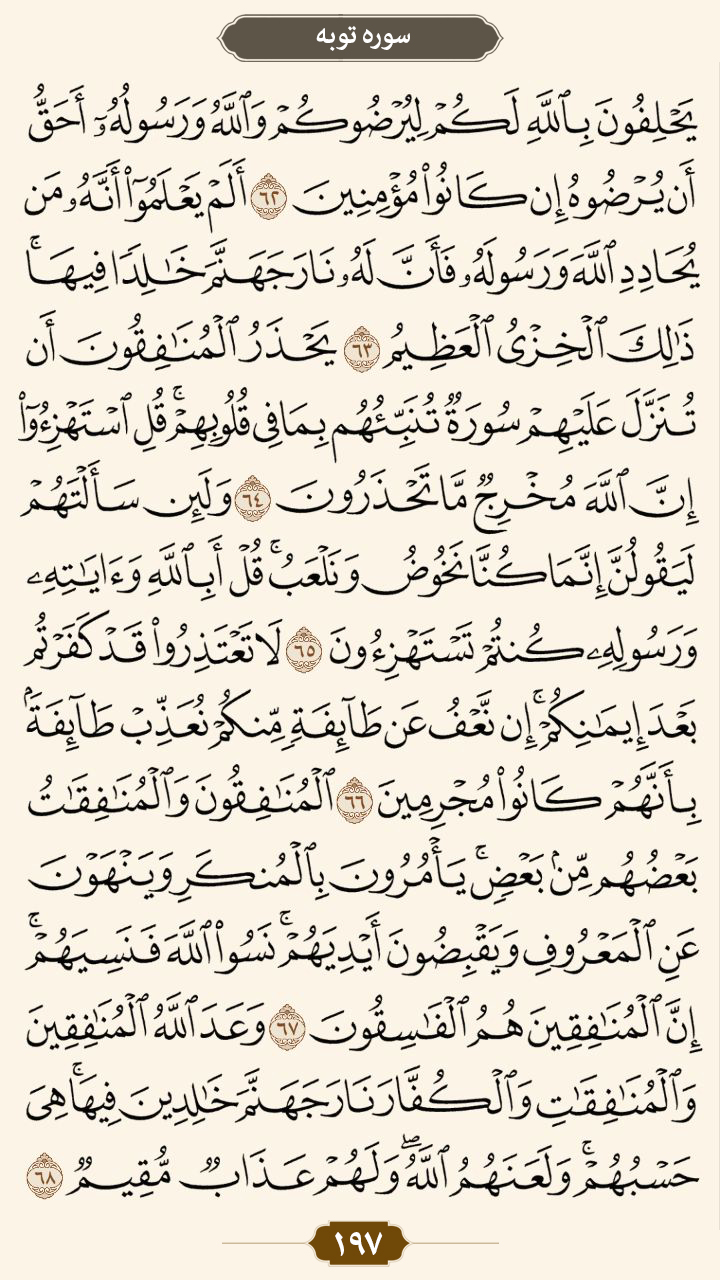 سوره توبه
يَحۡلِفُونَ بِٱللَّهِ لَكُمۡ لِيُرۡضُوكُمۡ وَٱللَّهُ وَرَسُولُهُۥٓ أَحَقُّ
أَن يُرۡضُوهُ إِن كَانُواْ مُؤۡمِنِينَ ٦٢ أَلَمۡ يَعۡلَمُوٓاْ أَنَّهُۥ مَن
يُحَادِدِ ٱللَّهَ وَرَسُولَهُۥ فَأَنَّ لَهُۥ نَارَ جَهَنَّمَ خَٰلِدٗا فِيهَاۚ
ذَٰلِكَ ٱلۡخِزۡيُ ٱلۡعَظِيمُ ٦٣ يَحۡذَرُ ٱلۡمُنَٰفِقُونَ أَن
تُنَزَّلَ عَلَيۡهِمۡ سُورَةٞ تُنَبِّئُهُم بِمَا فِي قُلُوبِهِمۡۚ قُلِ ٱسۡتَهۡزِءُوٓاْ
إِنَّ ٱللَّهَ مُخۡرِجٞ مَّا تَحۡذَرُونَ ٦٤ وَلَئِن سَأَلۡتَهُمۡ
لَيَقُولُنَّ إِنَّمَا كُنَّا نَخُوضُ وَنَلۡعَبُۚ قُلۡ أَبِٱللَّهِ وَءَايَٰتِهِۦ
وَرَسُولِهِۦ كُنتُمۡ تَسۡتَهۡزِءُونَ ٦٥ لَا تَعۡتَذِرُواْ قَدۡ كَفَرۡتُم
بَعۡدَ إِيمَٰنِكُمۡۚ إِن نَّعۡفُ عَن طَآئِفَةٖ مِّنكُمۡ نُعَذِّبۡ طَآئِفَةَۢ
بِأَنَّهُمۡ كَانُواْ مُجۡرِمِينَ ٦٦ ٱلۡمُنَٰفِقُونَ وَٱلۡمُنَٰفِقَٰتُ
بَعۡضُهُم مِّنۢ بَعۡضٖۚ يَأۡمُرُونَ بِٱلۡمُنكَرِ وَيَنۡهَوۡنَ
عَنِ ٱلۡمَعۡرُوفِ وَيَقۡبِضُونَ أَيۡدِيَهُمۡۚ نَسُواْ ٱللَّهَ فَنَسِيَهُمۡۚ
إِنَّ ٱلۡمُنَٰفِقِينَ هُمُ ٱلۡفَٰسِقُونَ ٦٧ وَعَدَ ٱللَّهُ ٱلۡمُنَٰفِقِينَ
وَٱلۡمُنَٰفِقَٰتِ وَٱلۡكُفَّارَ نَارَ جَهَنَّمَ خَٰلِدِينَ فِيهَاۚ هِيَ
حَسۡبُهُمۡۚ وَلَعَنَهُمُ ٱللَّهُۖ وَلَهُمۡ عَذَابٞ مُّقِيمٞ ٦٨
١٩٧